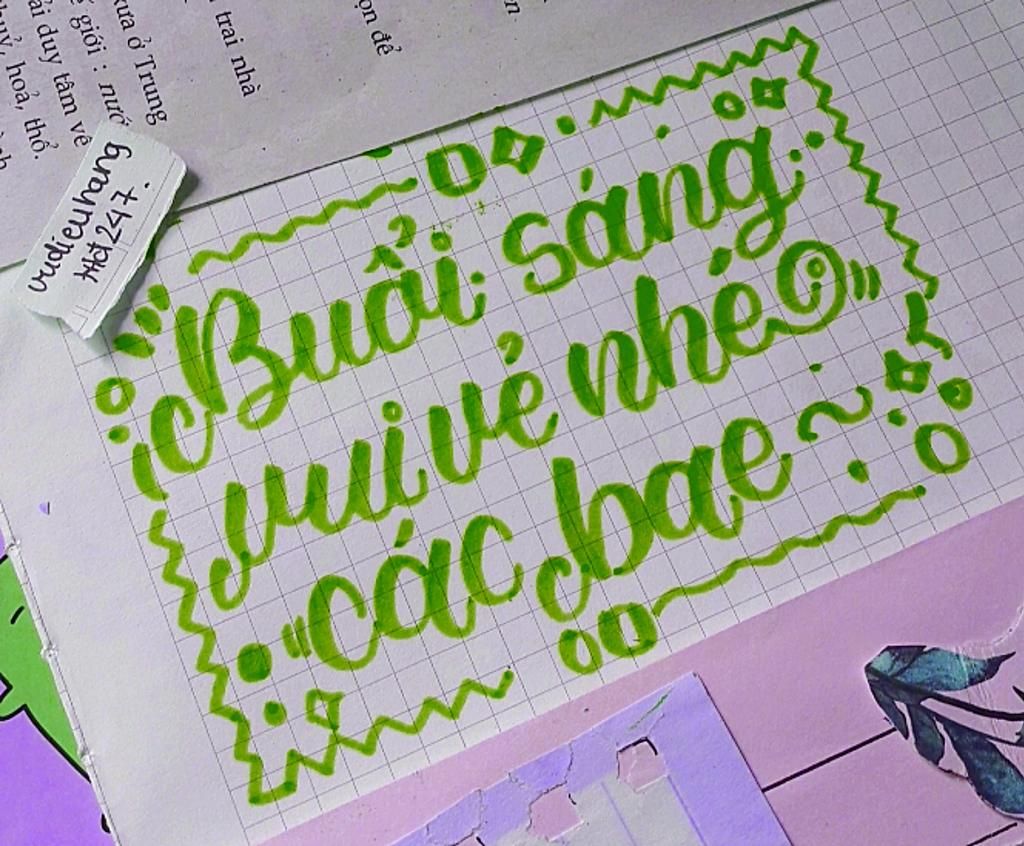 trai nhà
ọn để
xưa ở Trung
giới : nướ
ải duy tâm về
uỷ, hoả, thổ.
vudieuhang
Hot 247.
Buổi sáng
vui vẻ nhé
các bae ~